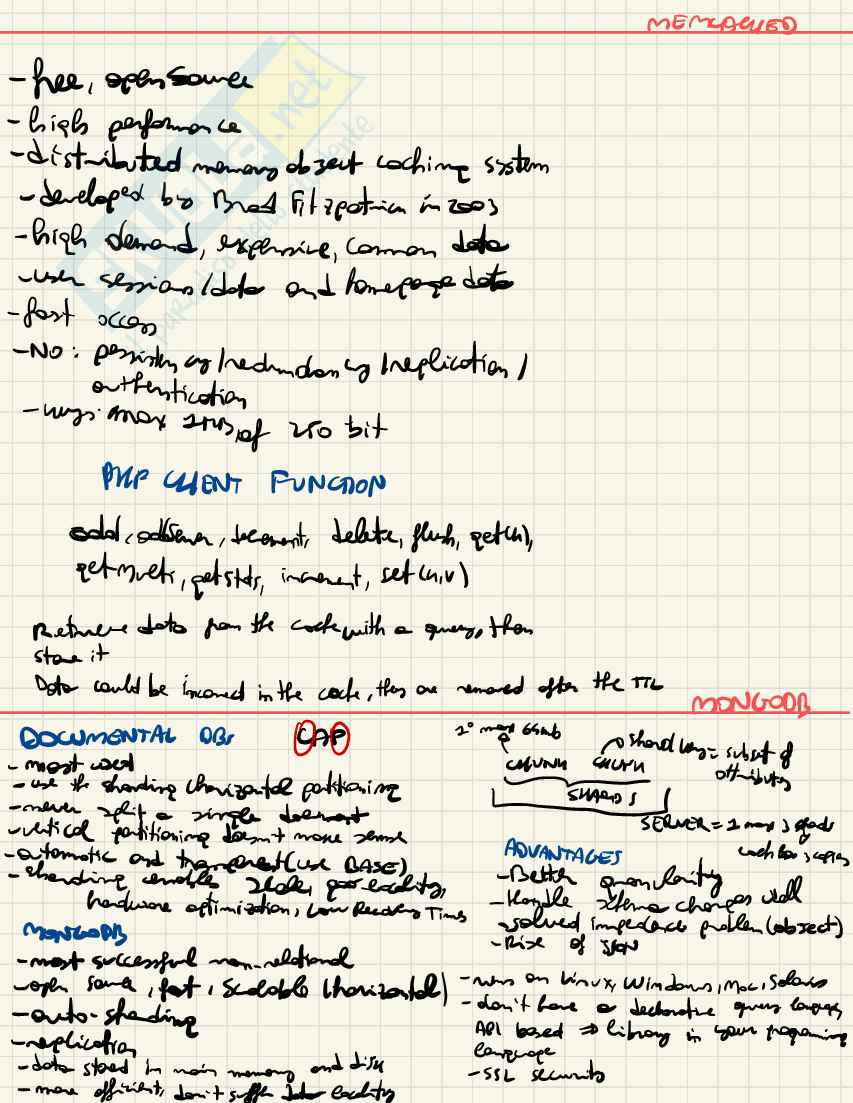 MEMCACHED
- free, open source
- high performance
- distributed memory object caching system
- developed by Brad Fitzpatrick in 2003
- high demand, expensive, common data
- user sessions/data and homepage data
- fast access
- NO: persistency/redundancy/replication/
authentication
- max 1MB, of 250 bit
PHP CLIENT FUNCTION
add, addServer, decrement, delete, flush, get(k),
getMulti, getStats, increment, set(k,v)
Retrieve data from the cache with a query, then
store it
Data could be in the cache, they are removed after the TTL
MONGODB
DOCUMENTAL DBs CAP
- most used
- use the sharding (horizontal partitioning
- never split a single document
- vertical partitioning doesn't make sense
- automatic and transparent (use BASE)
- sharding enables scale, geo-locality,
hardware optimization, Low Recovery Times
MONGODB
- most successful non-relational
- open source, fast, scalable (horizontal)
- auto-sharding
- replication
- data stored in main memory and disk
- more efficient, don't suffer data locality
1° max 64mb
CHUNK CHUNK shard key = subset of
attributes
SHARDS
SERVER = 1 max 3 shards
each has 3 copies
ADVANTAGES
- Better granularity
- Handle schema changes well
- solved impedance problem (object)
- Rise of JSON
- runs on Linux, Windows, Mac, Solaris
- don't have a declarative query language,
API based ⇒ library in your programming
language
- SSL security